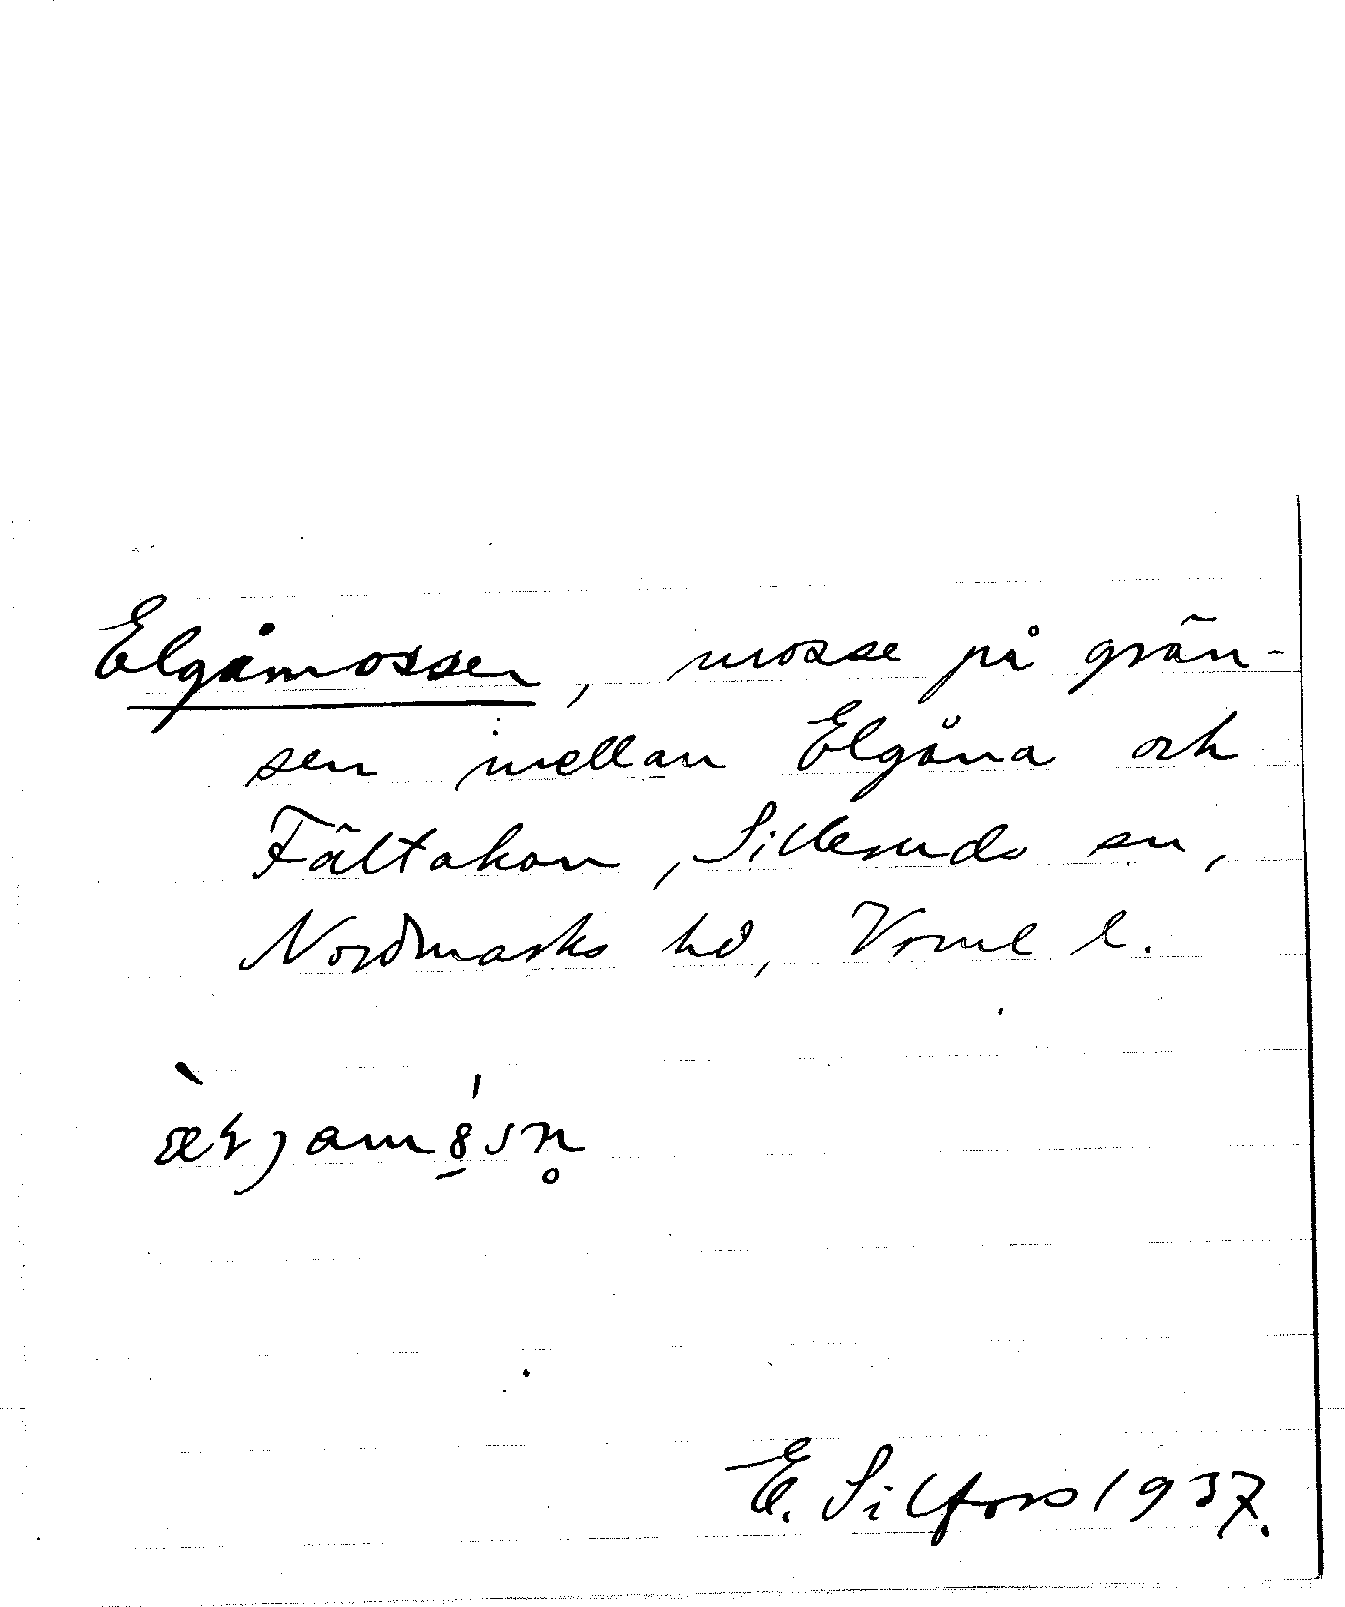 Elgåmossen, mosse på grän-
sen mellan Elgåna och
Fältakan, Silleruds sn,
Nordmarks hd, Vrml l.
E. Silfors 1937.